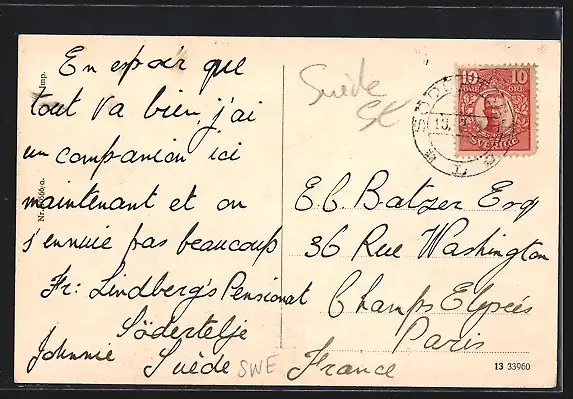 En espoir que
tout va bien, j'ai
un companion ici
maintenant et on
s'ennuie pas beaucoup
Fr: Lindberg's Pensionat
Södertelje
Johnnie Suède
SWE
Suède
10 10
ÖRE
SVERIGE
E. C. Batzer Esq
36 Rue Washington
Champs Elyseés
Paris
France
Imp.
Nr.
13 33960